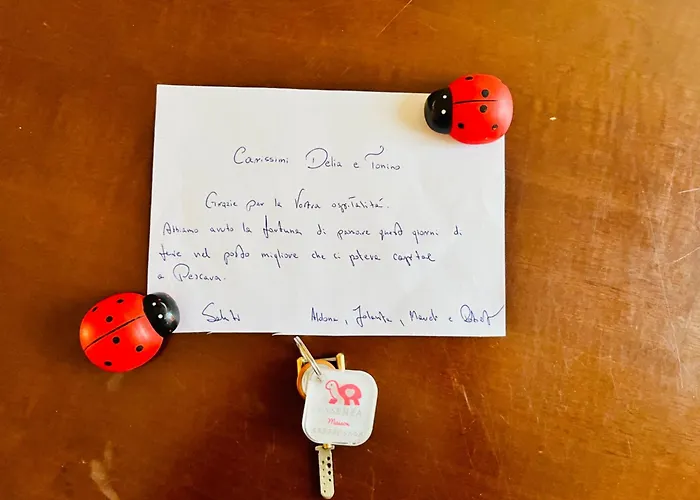 Carissimi Delia e Tonino
Grazie per la Vostra ospitalità.
Abbiamo avuto la fortuna di passare questi giorni di
ferie nel posto migliore che ci poteva capitare
a Pescara.
Saluti Aldona, Jolanta, e
Maison